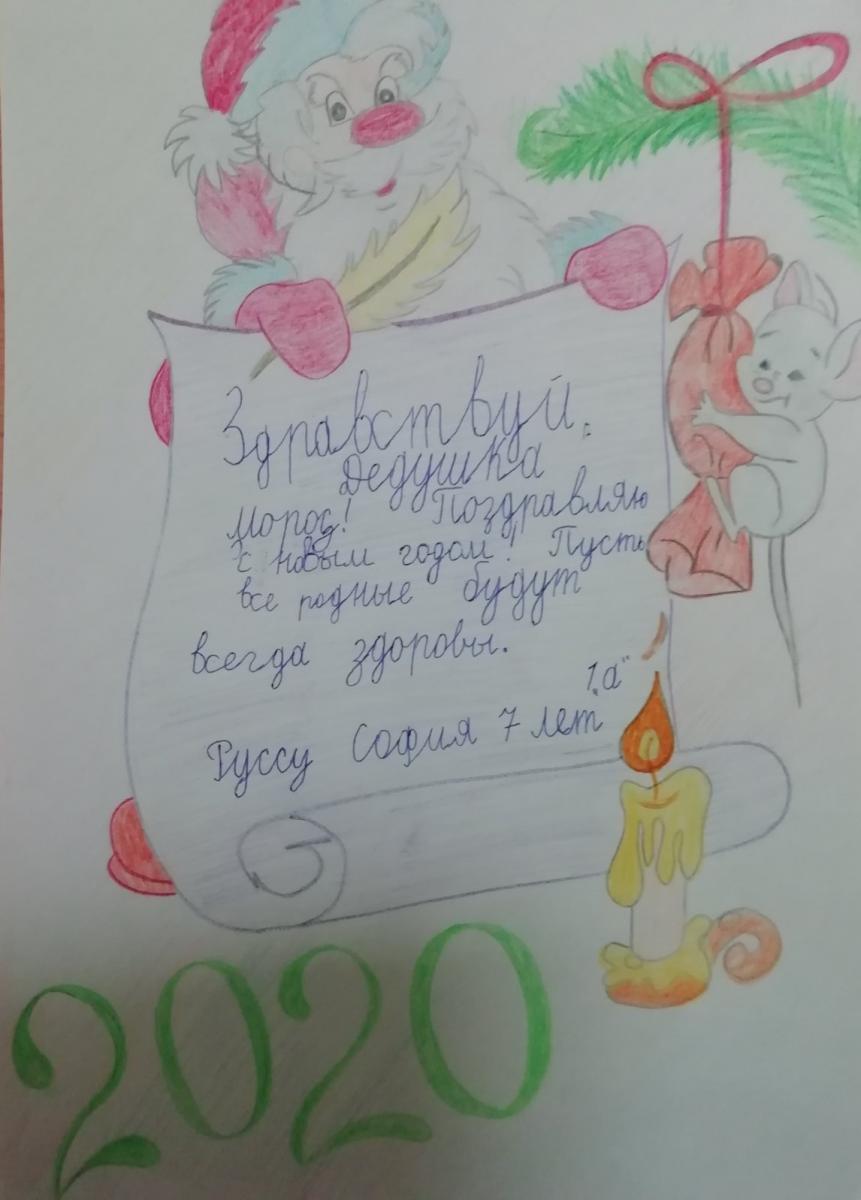 Здравствуй,
Дедушка
Мороз! Поздравляю
с новым годом! Пусть
все родные будут
всегда здоровы.
1 „а"
Руссу София 7 лет
2020